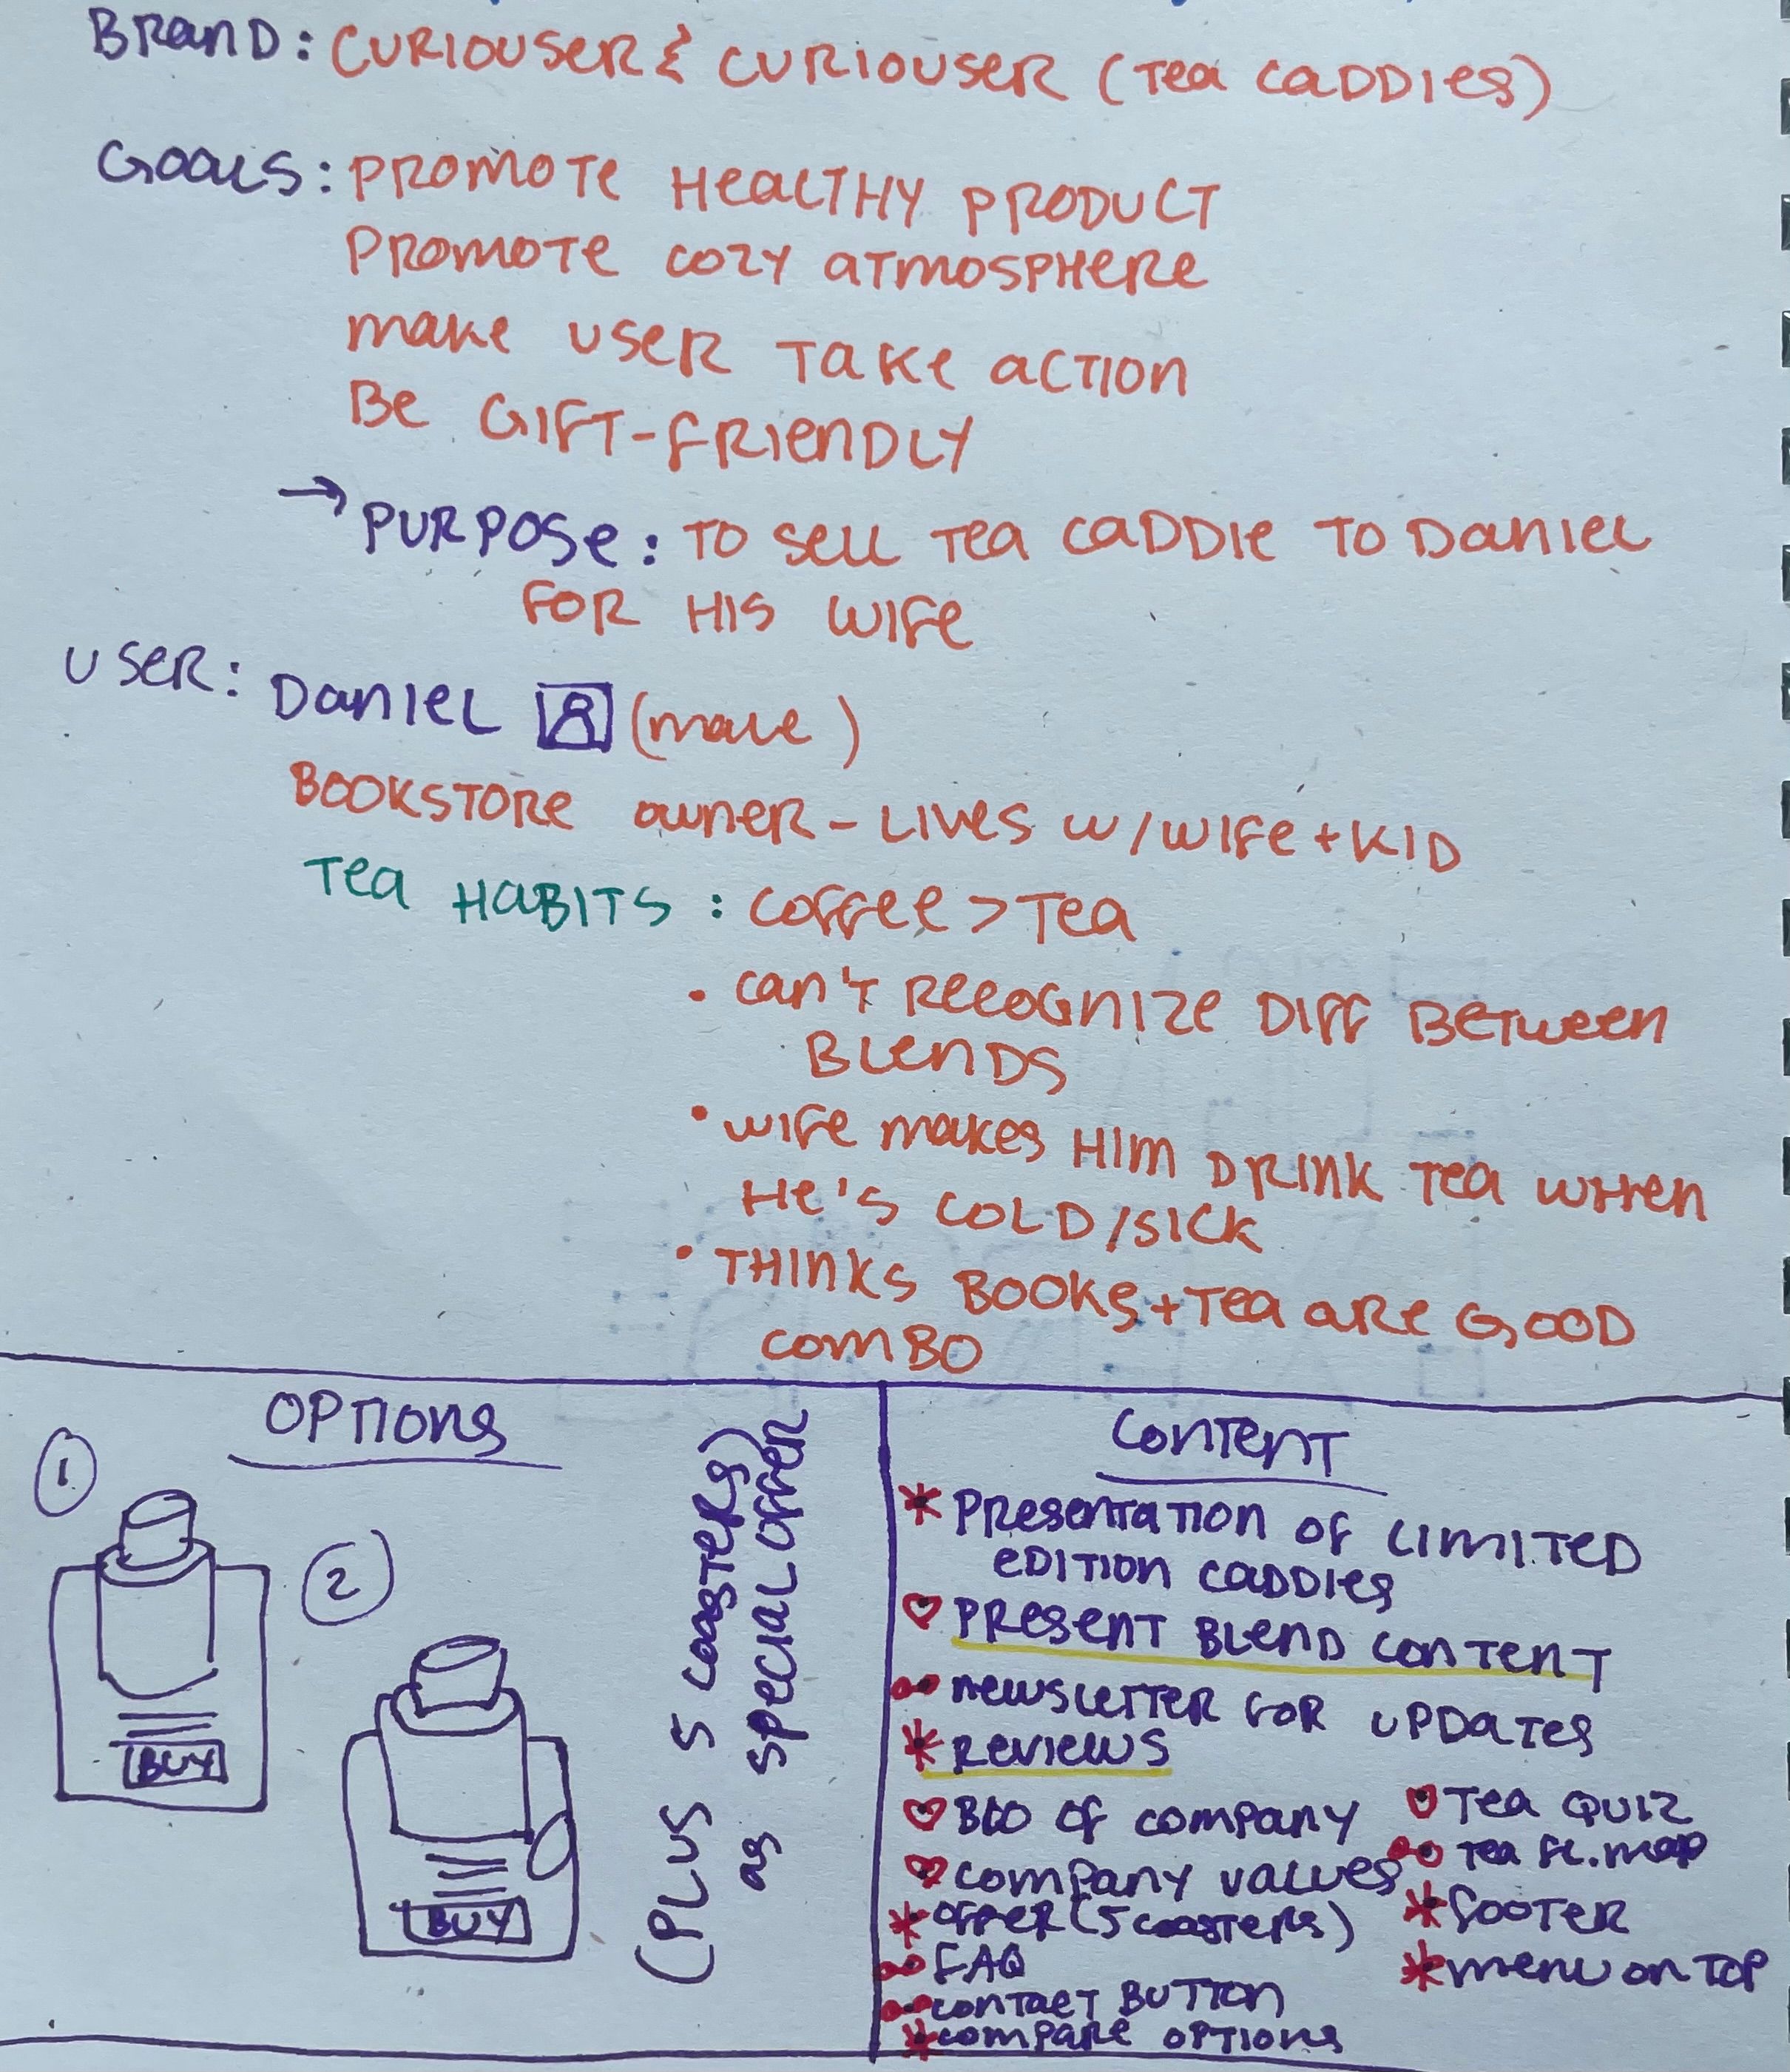 BRAND: CURIOUSER & CURIOUSER (TEA CADDIES)
GOALS: PROMOTE HEALTHY PRODUCT
PROMOTE COZY ATMOSPHERE
MAKE USER TAKE ACTION
BE GIFT-FRIENDLY
→ PURPOSE: TO SELL TEA CADDIE TO DANIEL
FOR HIS WIFE
USER: DANIEL (male)
BOOKSTORE OWNER - LIVES W/WIFE + KID
TEA HABITS: COFFEE > TEA
• CAN'T RECOGNIZE DIFF BETWEEN
BLENDS
• WIFE MAKES HIM DRINK TEA WHEN
HE'S COLD/SICK
• THINKS BOOKS + TEA ARE GOOD
COMBO
OPTIONS
1
BUY
2
BUY
(PLUS 5 COASTERS)
as SPECIAL OFFER
CONTENT
* PRESENTATION OF LIMITED
EDITION CADDIES
♡ PRESENT BLEND CONTENT
NEWSLETTER FOR UPDATES
* REVIEWS
♡ BIO OF COMPANY
♡ COMPANY VALUES
* OFFER (5 COASTERS)
FAQ
CONTACT BUTTON
* COMPARE OPTIONS
♡ TEA QUIZ
TEA FL. MAP
* FOOTER
* MENU ON TOP